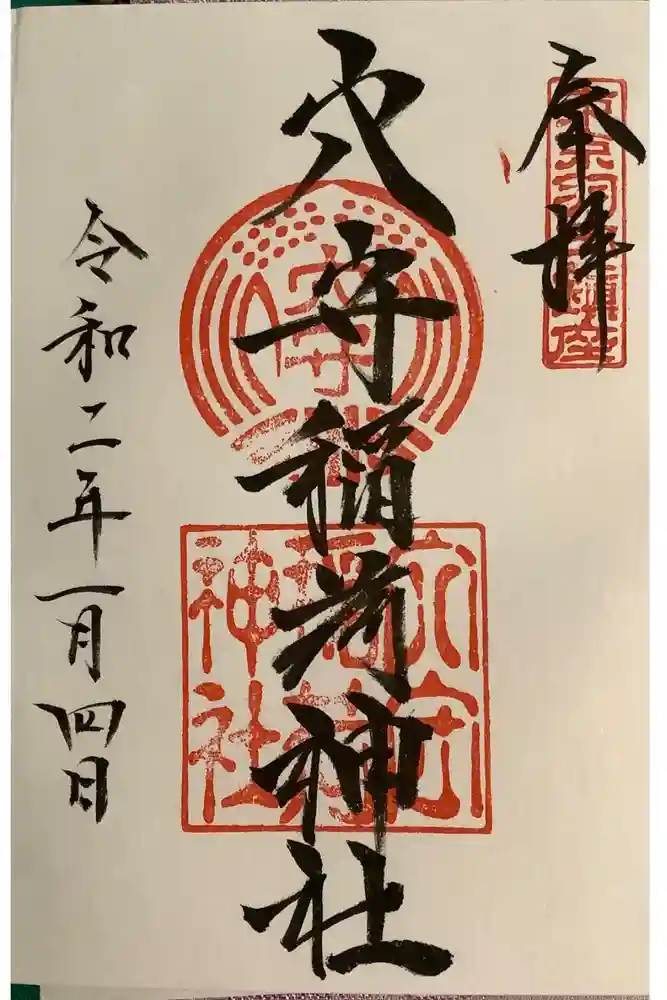 奉拝
穴守稲荷神社
穴守稲荷神社
令和二年一月四日